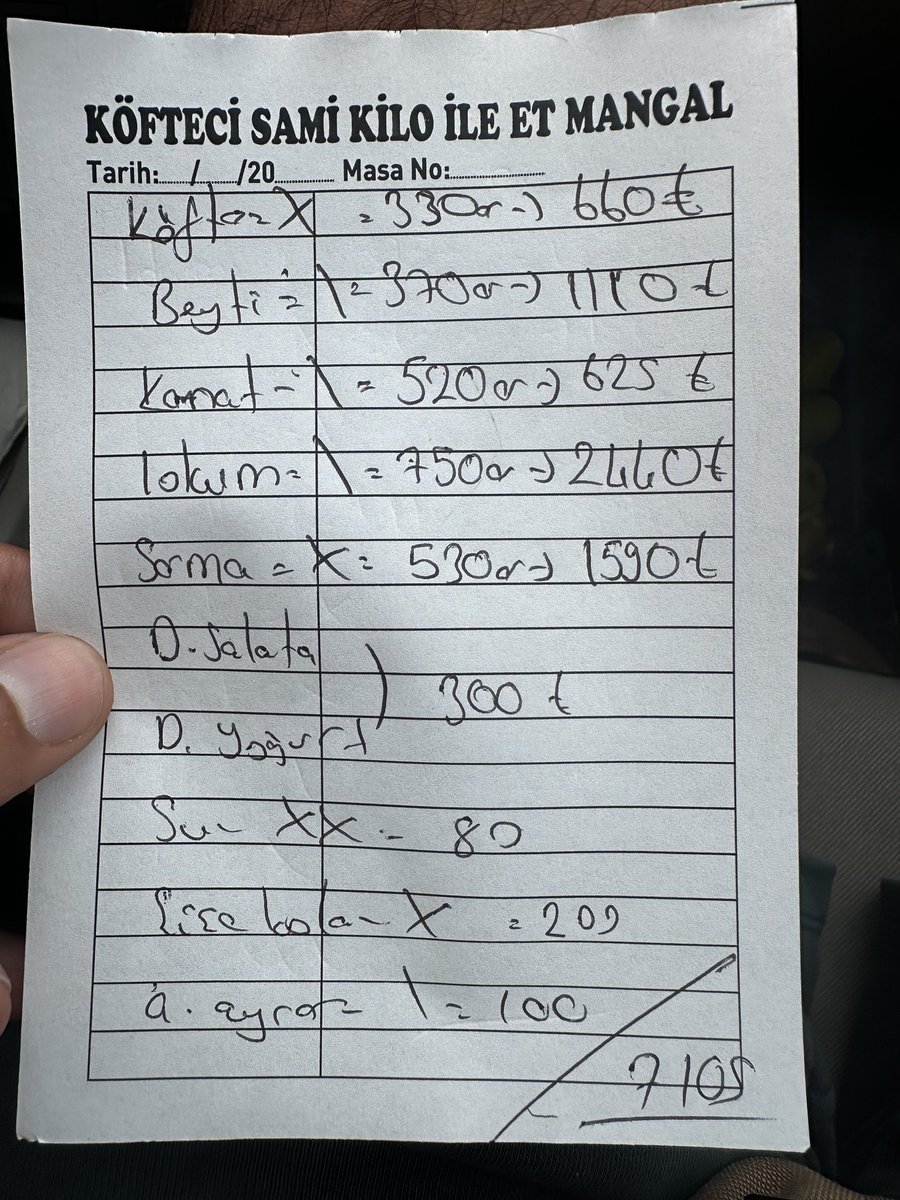 KÖFTECİ SAMİ KİLO İLE ET MANGAL
Tarih:....../....../20............ Masa No:....................
Köfte = X = 330gr → 660 ₺
Beyti = \ = 370gr → 1110 ₺
Kanat = \ = 520gr → 625 ₺
Lokum = \ = 750gr → 2440 ₺
Sarma = X = 530gr → 1590 ₺
D. Salata
) 300 ₺
D. Yoğurt
Su - XX = 80
Şişe kola - X = 200
A. ayran = \ = 100
7105